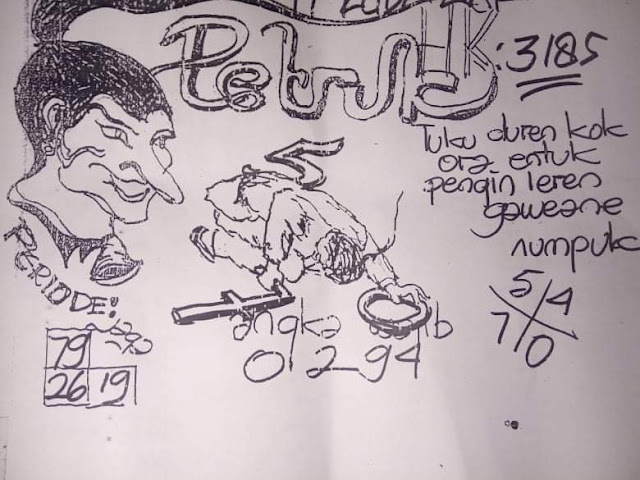 Petruk HK: 3185
Tuku duren kok
ora entuk
pengin leren
gaweane
numpuk
PERIODE:
79
26 19
angka
0 2 9 4
5 4
7 0